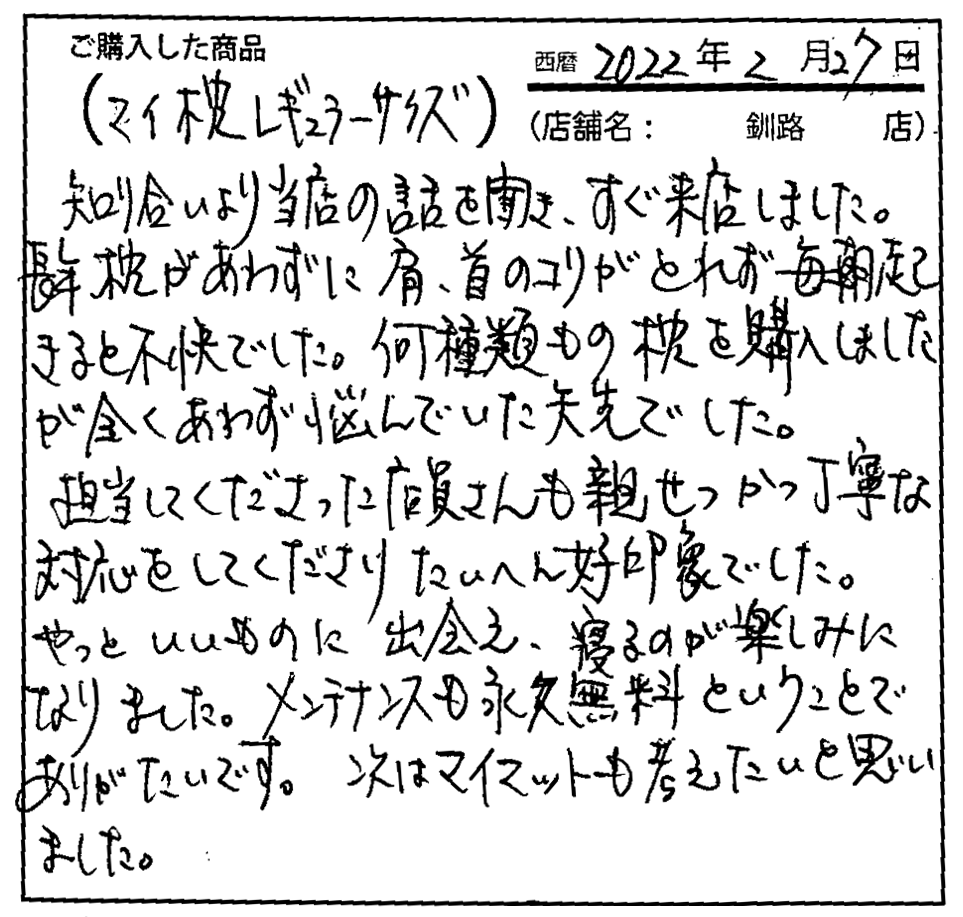 ご購入した商品
西暦 2022年2月27日
(マイ枕レギュラーサイズ)
(店舗名: 釧路 店)
知り合いより当店の話を聞き、すぐ来店しました。
長年枕があわずに肩、首のコリがとれず毎朝起
きると不快でした。何種類もの枕を購入しました
が全くあわず悩んでいた矢先でした。
担当してくださった店員さんも親せつかつ丁寧な
対応をしてくださりたいへん好印象でした。
やっといいものに出会え、寝るのが楽しみに
なりました。メンテナンスも永久無料ということで
ありがたいです。次はマイマットも考えたいと思い
ました。